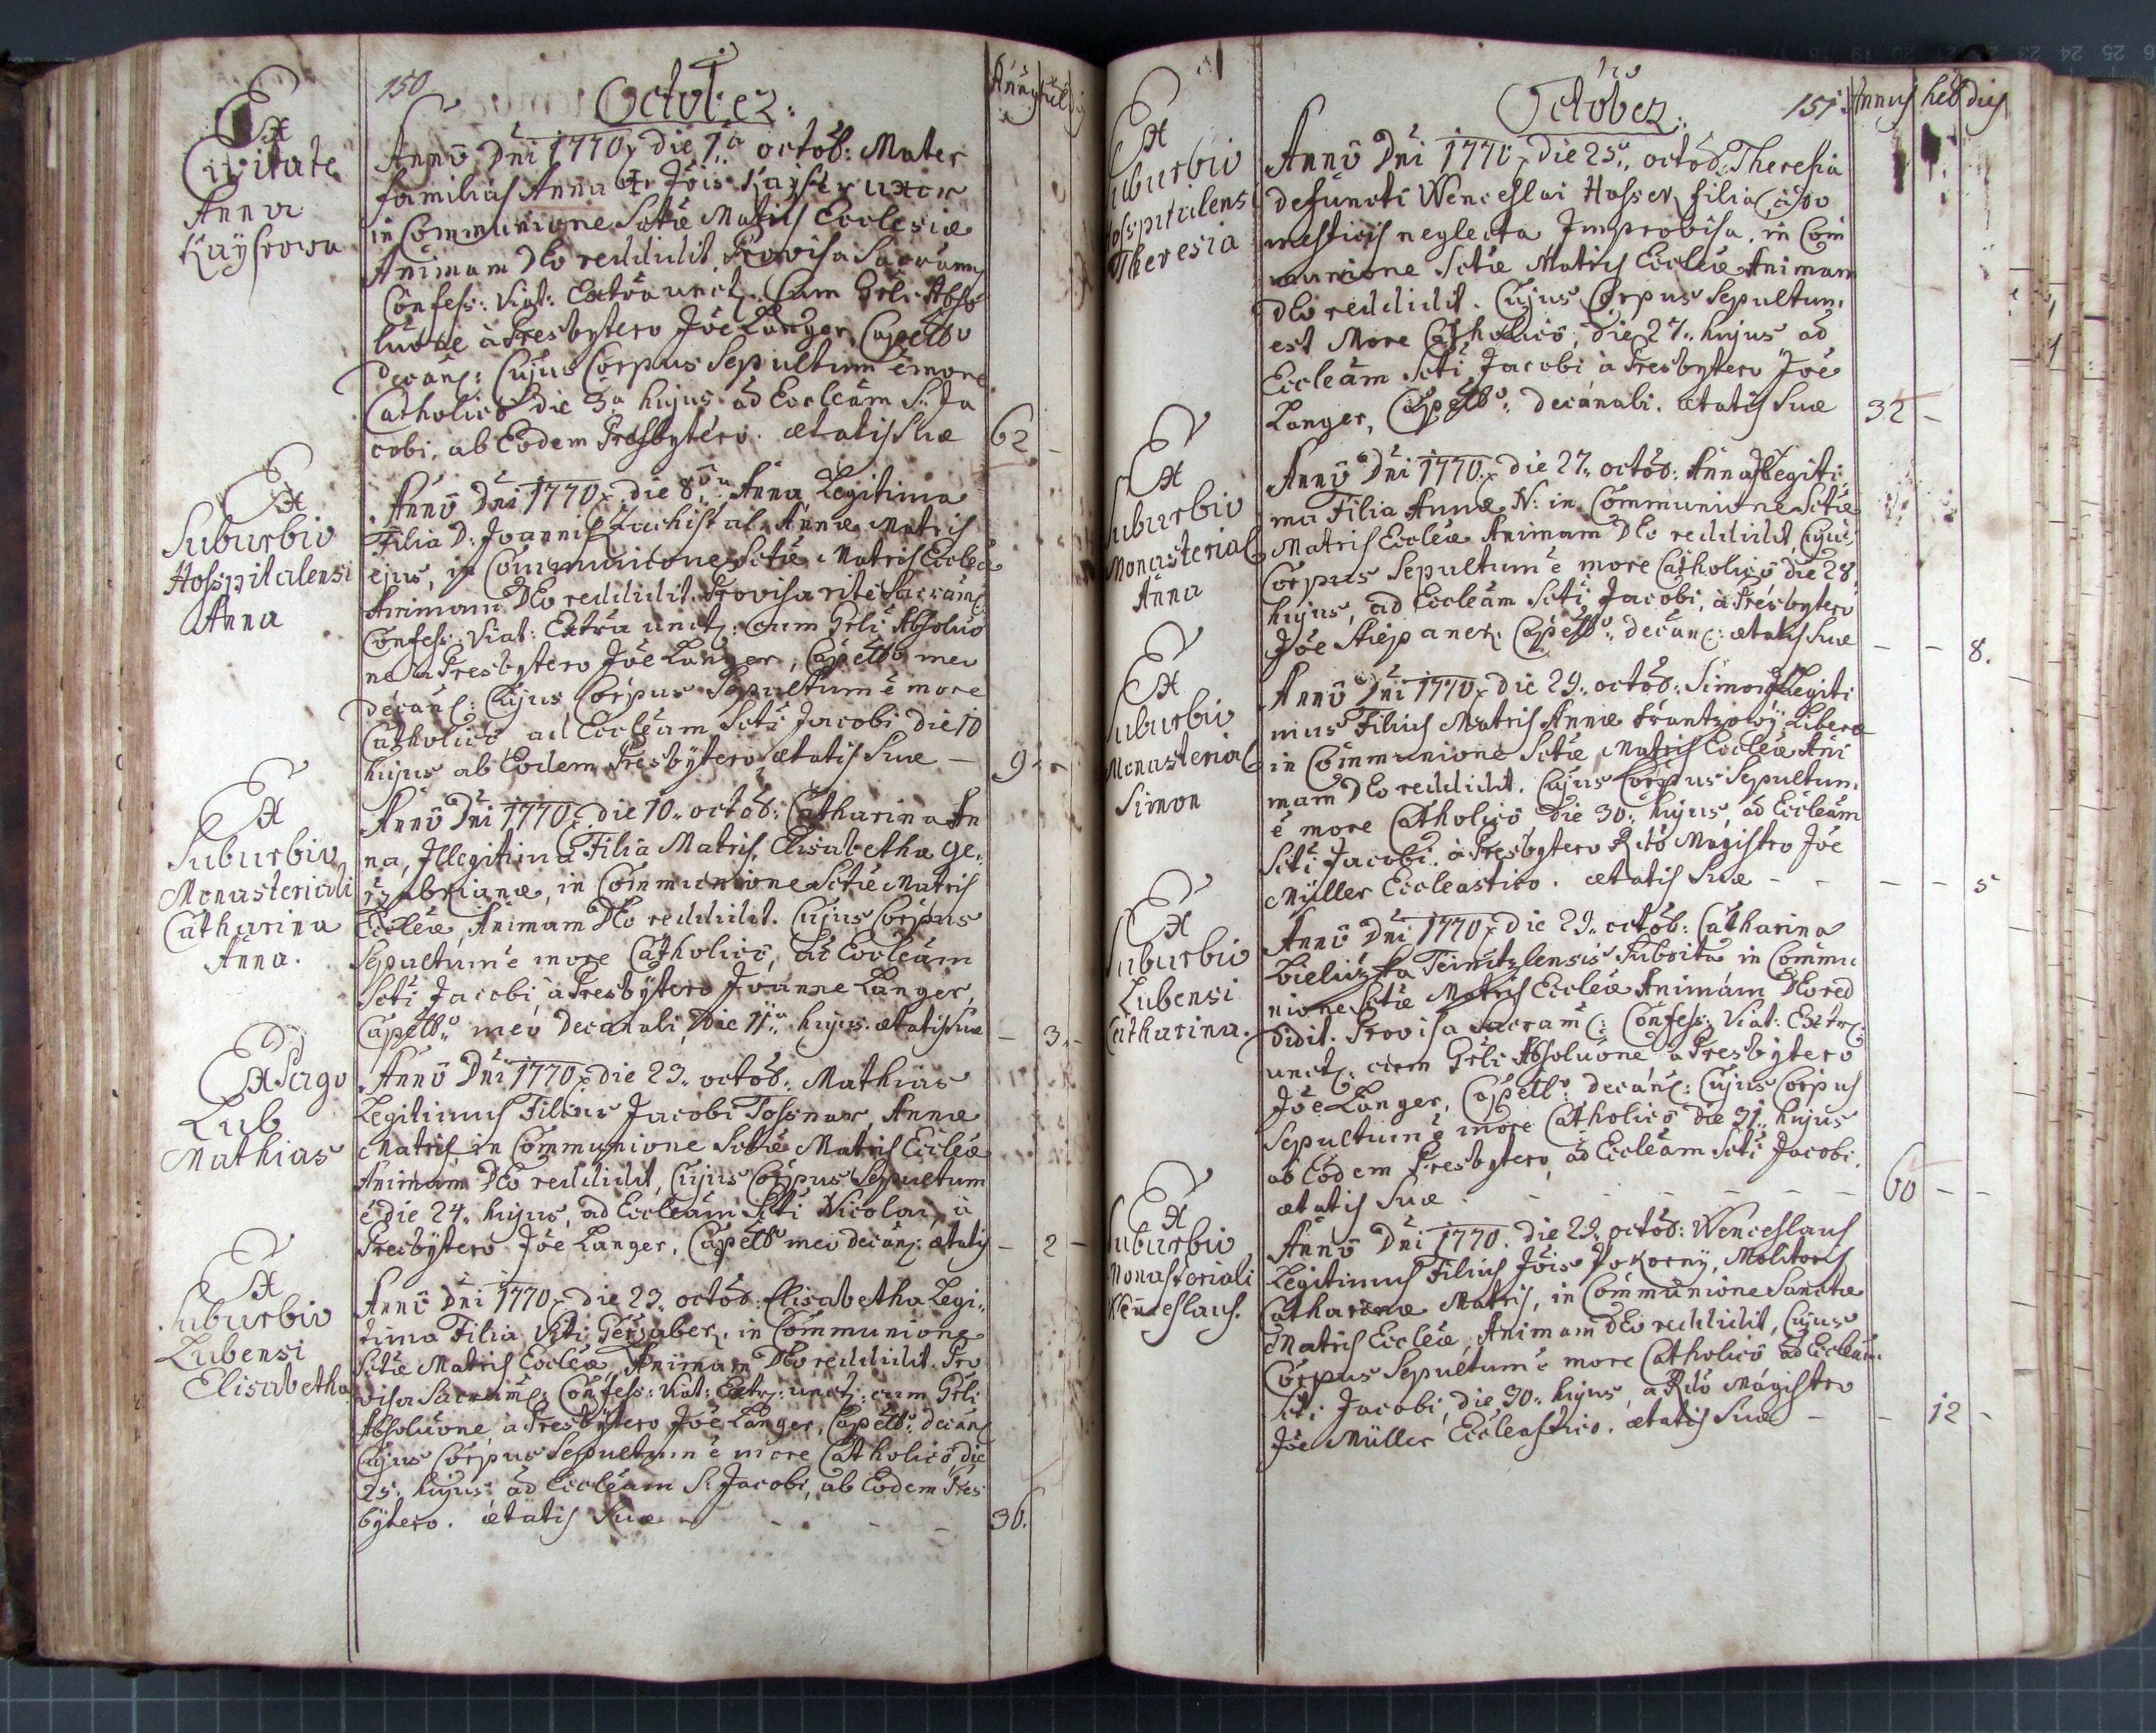 150
October:
Annus heb
Ex
Civitate
Anna
Kaysrowa
Annô Dni 1770, die 1.a octob: Mater
familias Anna Jōis Kayser uxor
in Communione Sctæ Matris Ecclesiæ
Animam Deo reddidit. Provisa Sacram
Confess: Viat: Extra unct: Cum Grli Abso
luõne à Presbytero Jōe Langer Capello
decan: Cujus Corpus Sepultum ē more
Catholicô die 3.a hujus ad Eccleam S. Ja
cobi, ab Eodem Presbytero. ætatis Suæ 62 -
Ex
Suburbio
Hosspitalensi
Anna
Annô Dni 1770, die 8.va Anna Legitima
Filia D: Joannis Annæ Matris
ejus, in Communione Sctæ Matris Eccleæ
Animam Deo reddidit. Provisa rite Sacram
Confess: Viat: Extra unct: cum Grli Absoluõ
ne à Presbytero Jōe Langer, Capello meo
decan: Cujus Corpus Sepultum ē more
Catholicô, ad Eccleam Scti Jacobi die 10
hujus ab Eodem Presbytero, ætatis Suæ - 9 -
Ex
Suburbio
Monasteriali
Catharina
Anna.
Annô Dni 1770, die 10. octob: Catharina An
na, Illegitima Filia Matris, Elisabetha Ge:
in Communione Sctæ Matris
Eccleæ, Animam Deo reddidit. Cujus Corpus
Sepultum ē more Catholicô, ad Eccleam
Scti Jacobi, à Presbytero Joanne Langer,
Capello meo Decanali, Die 11.a hujus ætatis Suæ - 3. -
Ex Pago
Lub
Mathias
Annô Dni 1770, die 23. octob: Mathias
Legitimus Filius Jacobi Tossnar, Annæ
Matris, in Communione Sctæ Matris Eccleæ
Animam Deo reddidit, Cujus Corpus Sepultum
ē die 24. hujus, ad Eccleam Scti Nicolai, à
Presbytero Jōe Langer, Capello meo decan: ætatis - 2 -
Ex
Suburbio
Lubensi
Elisabetha
Annô Dni 1770, die 23. octob: Elisabetha Legi:
tima Filia Viti in Communione
Sctæ Matris Eccleæ, Animam Deo reddidit. Pro
visa Sacram: Confess: Viat: Extr: unct: cum Grli
Absoluõne, a Presbytero Jōe Langer, Capello: decan
Cujus Corpus Sepultum ē more Catholicô, die
25. hujus ad Eccleam S. Jacobi, ab Eodem Pres
bytero. ætatis Suæ - - - - 36.
October:
151
Annus heb dies
Ex
Suburbio
Hosspitalensi
Theresia
Annô Dni 1770, die 25. octob: Theresia
defuncti Wenceslai Hasser, filia, à so
mesticis neglecta Improvisa, in Com
munione Sctæ Matris Eccleæ Animam
Deo reddidit. Cujus Corpus Sepultum
est More Catholicô, die 27. hujus ad
Eccleam Scti Jacobi à Presbytero Jōe
Langer, Capello: decanali. ætatis Suæ 32 -
Ex
Suburbio
Monasterial
Anna
Annô Dni 1770, die 27. octob: Anna Illegiti
ma Filia Annæ N: in Communione Sctæ
Matris Eccleæ Animam Deo reddidit, Cujus
Corpus Sepultum ē more Catholicô die 28.
hujus, ad Eccleam Scti Jacobi, à Presbytero
Jōe Stiepaner, Capello: decan: ætatis Suæ - - 8.
Ex
Suburbio
Monasterial
Simon
Annô Dni 1770, die 29. octob: Simon Illegiti
mus Filius Matris Annæ Frantzowy Liberæ
in Communione Sctæ Matris Eccleæ Ani
mam Deo reddidit. Cujus Corpus Sepultum
ē more Catholicô die 30. hujus, ad Eccleam
Scti Jacobi. à Presbytero Rdo Magistro Jōe
Müller Eccleastico. ætatis Suæ - - - - 5
Ex
Suburbio
Lubensi
Catharina.
Annô Dni 1770, die 29. octob: Catharina
Subdita in Commu
nione Sctæ Matris Eccleæ Animam Deo red
didit. Provisa Sacram: Confess: Viat: Extr:
unct: cum Grli Absoluõne à Presbytero
Jōe Langer, Capell: decan: Cujus Corpus
Sepultum ē more Catholicô die 31. hujus
ab Eodem Presbytero, ad Eccleam Scti Jacobi.
ætatis Suæ. - - - - - 60 - -
Ex
Suburbio
Monasteriali
Wenceslaus.
Annô Dni 1770. die 29. octob: Wenceslaus
Legitimus Filius Jōis Pokorny, Molitoris
Catharinæ Matris, in Communione Sanctæ
Matris Eccleæ, Animam Deo reddidit, Cujus
Corpus Sepultum ē more Catholicô ad Eccleam
Scti Jacobi, die 30. hujus, à Rdo Magistro
Jōe Müller Eccleastico. ætatis Suæ - - 12 -